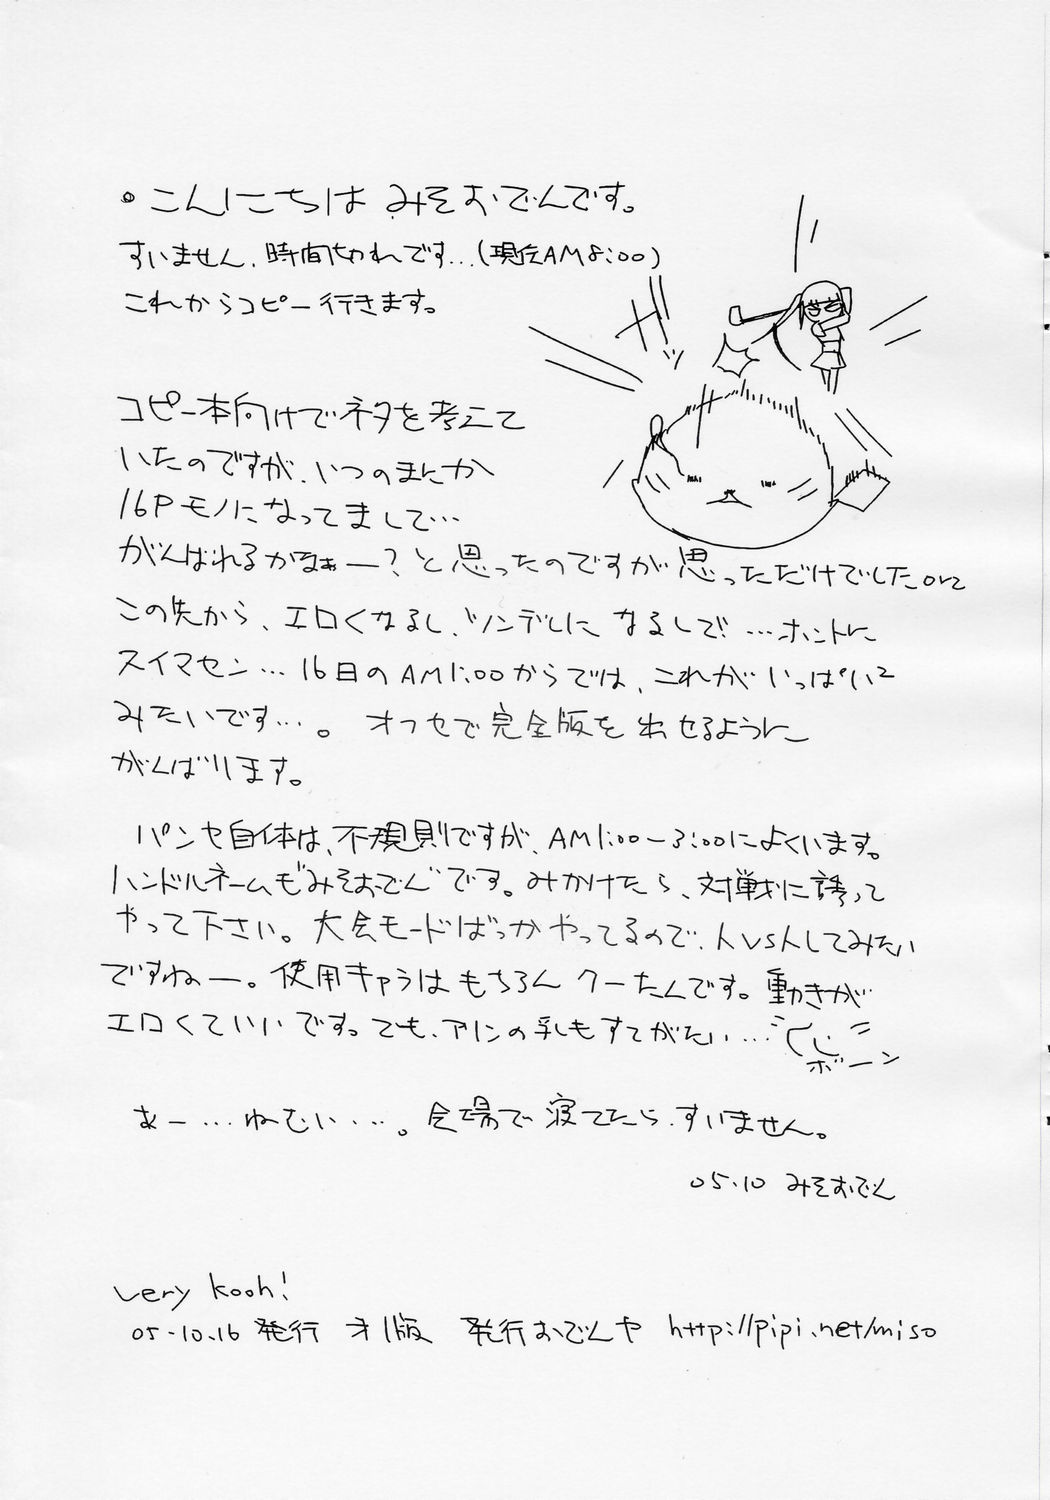 。こんにちは みそおでんです。
すいません、時間切れです…(現在AM8:00)
これからコピー行きます。
ガッ
コピー本向けでネタを考えて
いたのですが、いつのまにか
16Pモノになってまして…
がんばれるかなぁー?と思ったのですが思っただけでしたorz
この先から、エロくなるし、ツンデレになるしで!…ホントに
スイマセン…16日のAM1:00からでは、これがいっぱい²
みたいです…。オフセで完全版を出せるように
がんばります。
パンヤ自体は、不規則ですが、AM1:00-3:00によくいます。
ハンドルネームも"みそおでん"です。みかけたら、対戦に誘って
やって下さい。大会モードばっかやってるので、人vs人してみたい
ですねー。使用キャラはもちろん クーたんです。動きが
エロくていいです。でも、アリンの乳もすてがたい…
ボーン
あー…ねむい…。会場で寝てたら、すいません。
05.10 みそおでん
very kooh!
05.10.16 発行 オ1版 発行おでんヤ http://pipi.net/miso